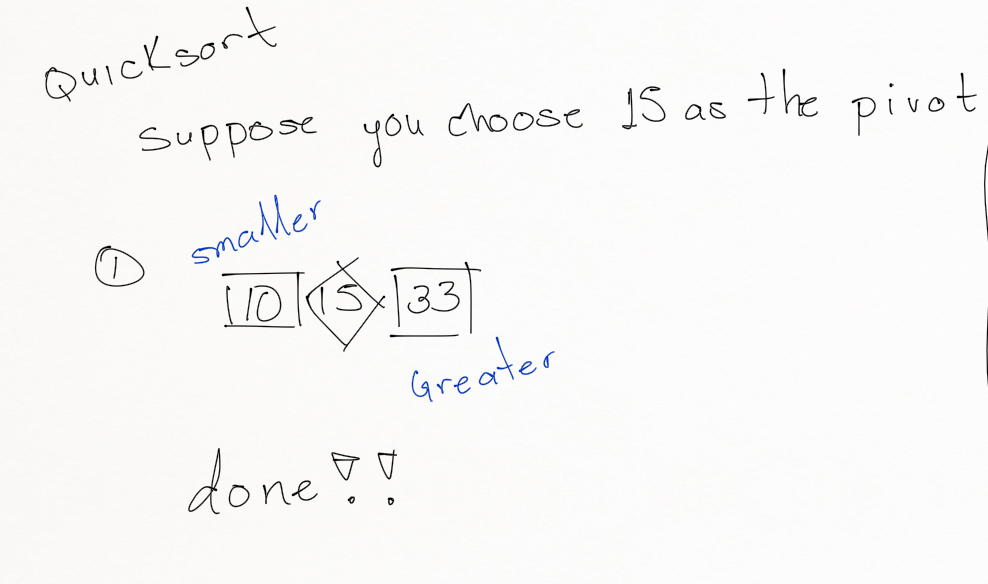 Quicksort
suppose you choose 15 as the pivot
① smaller
10 15 33
Greater
done!!